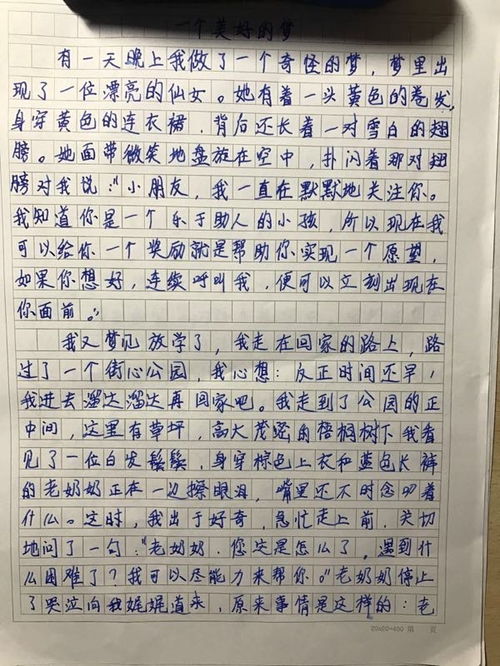 一个美好的梦
有一天晚上我做了一个奇怪的梦，梦里出
现了一位漂亮的仙女。她有着一头黄色的卷发，
身穿黄色的连衣裙，背后还长着一对雪白的翅
膀。她面带微笑地盘旋在空中，扑闪着那对翅
膀对我说："小朋友，我一直在默默地关注你。
我知道你是一个乐于助人的小孩，所以现在我
可以给你一个奖励就是帮助你实现一个愿望，
如果你想好，连续呼叫我，便可以立刻出现在
你面前。"
我又梦见放学了，我走在回家的路上，路
过了一个街心公园，我心想：反正时间还早！
我进去溜达溜达再回家吧。我走到了公园的正
中间，这里有草坪，高大茂密的梧桐树下我看
见了一位白发鬓鬓，身穿棕色上衣和蓝色长裤
的老奶奶正在一边擦眼泪，嘴里还不时念叨着
什么。这时，我出于好奇，急忙走上前，关切
地问了一句："老奶奶，您这是怎么了，遇到什
么困难了？我可以尽能力来帮你。"老奶奶停止
了哭泣向我娓娓道来，原来事情是这样的：老
20x20=400 第 页